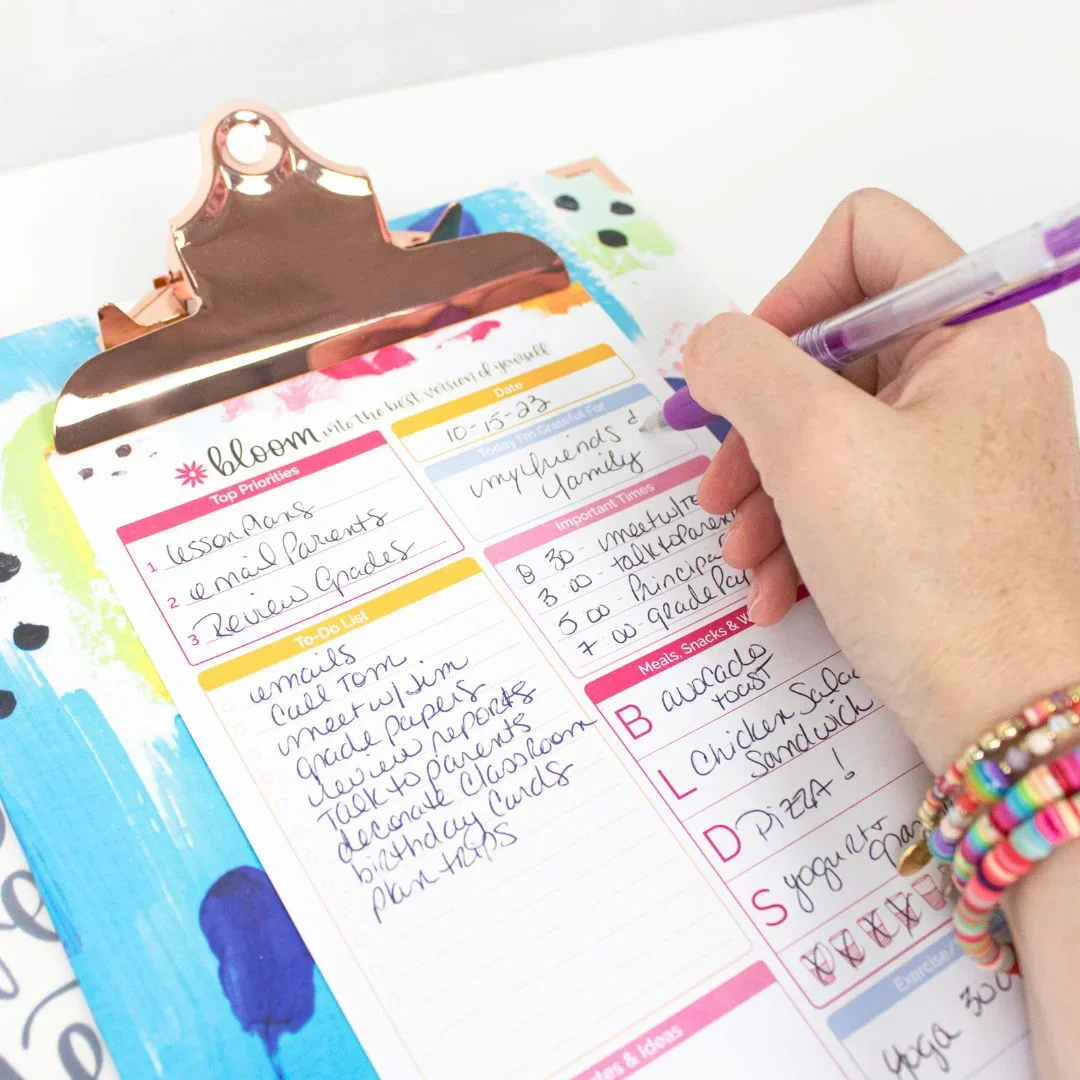 bloom into the best version of yourself
Top Priorities
1 lesson plans
2 email Parents
3 Review Grades
To-Do List
emails
Call Tom
meet w/ Jim
grade papers
review reports
Talk to parents
decorate classroom
birthday cards
plan trips
Date
10-15-23
Today I'm Grateful For
my friends &
family
Important Times
8 30 - meet w/
3 00 - talk to Paren
5 00 - Principa
7 00 - grade Pa
Meals, Snacks & W
B avocado
toast
L Chicken Sala
Sandwich
D PIZZA!
S yogurt
Exercise/
yoga 30
es & Ideas